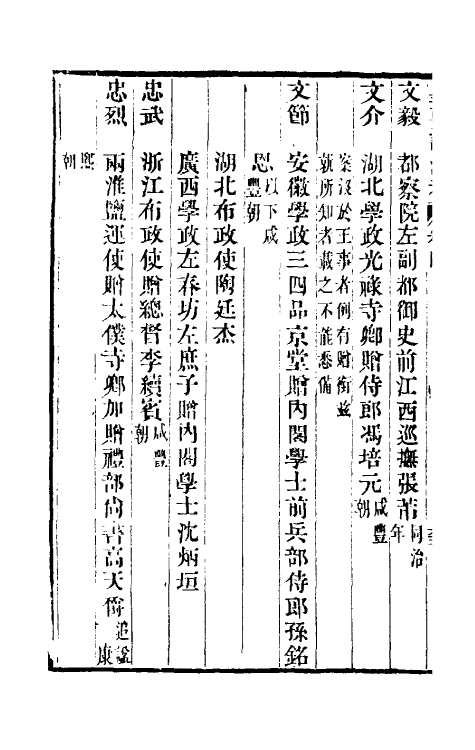 文毅　都察院左副都御史前江西巡撫張芾同治年
文介　湖北學政光祿寺卿贈侍郎馮培元咸豐朝
案沒於王事者例有贈銜茲就所知者載之不能悉備
文節　安徽學政三四品京堂贈內閣學士前兵部侍郎孫銘
恩以下咸豐朝
湖北布政使陶廷杰
廣西學政左春坊左庶子贈內閣學士沈炳垣
忠武　浙江布政使贈總督李續賓咸豐朝
忠烈　兩淮鹽運使贈太僕寺卿加贈禮部尚書高天爵追諡康
熙朝